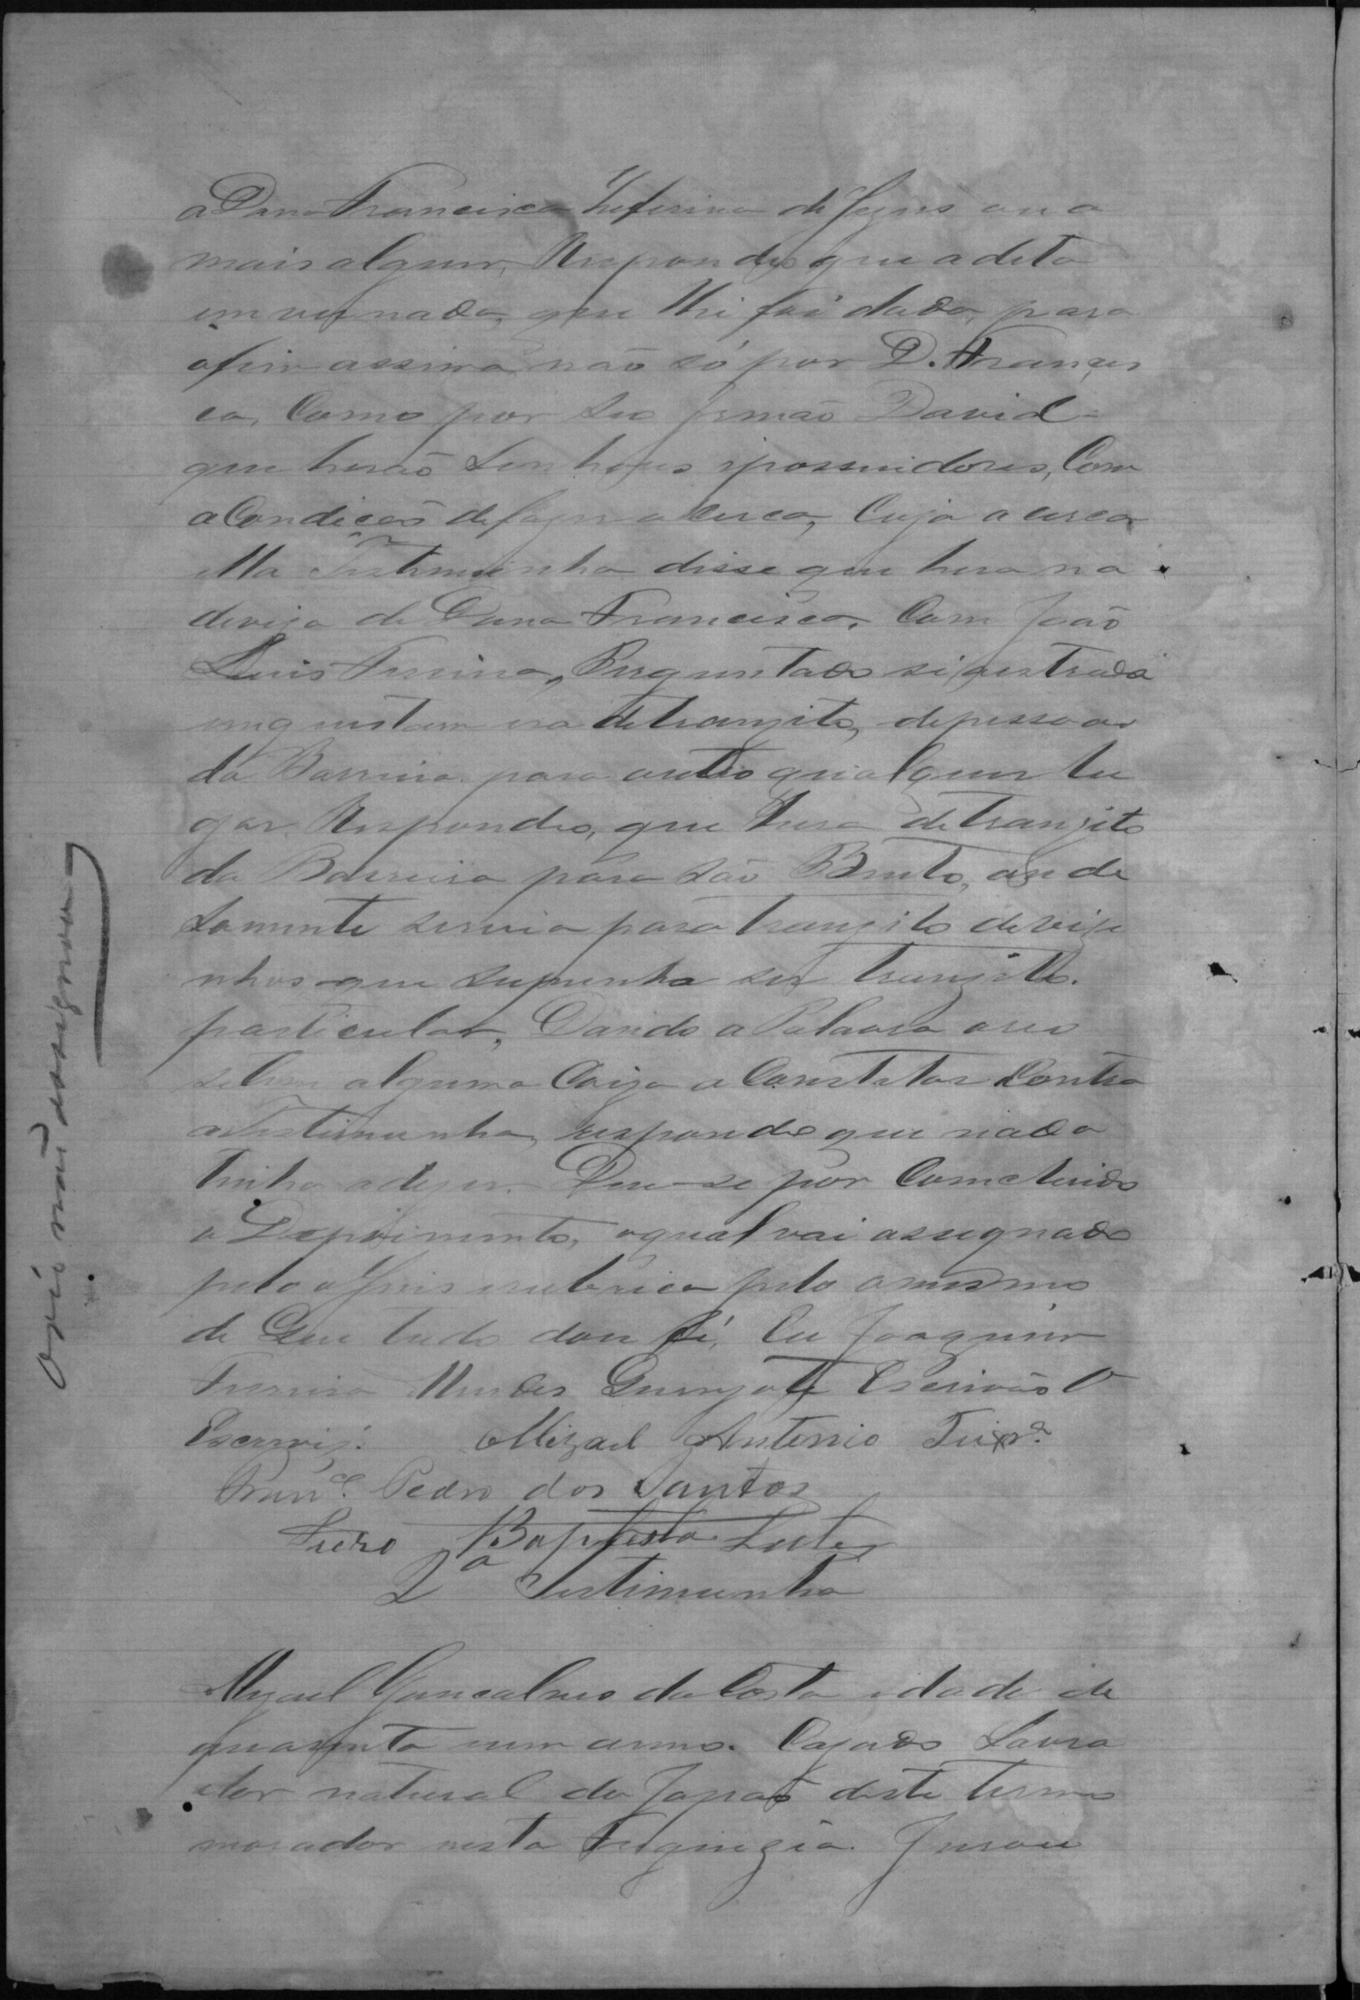 a Dona Francisca Zeferina de Jezus ou a
mais alguem, Respondeo que a dita
invernada, que lhi foi dada, para
o fim assima não só por D. Francis
ca, Como por seo Irmão David
que herão Senhores ipossuidores, Com
a Condicão de fazer a cerca, Cuja a cerca
ella Testimunha disse que hera na
deviza de Dona Francisca, Com João
Luis Ferreira, Preguntado si a estrada
em questam era de tranzito, de pessoas
da Barreira para outro qualquer lu
gar. Respondeo, que hera de tranzito
da Barreira para São Bento, onde
Somente servia para tranzito de vizi
nhos que supunha ser tranzito
particular, Dando a Palavra a reo
se tem alguma Coiza a Contestar Contra
a Testimunha, respondeo que nada
tinha a dizer. Deu-se por Concluido
o Depoimento, o qual vai assignado
pelo o Juis rubrica pelo o mesmo
de Que tudo dou fé, Eu Joaquim
Ferreira Mendes Escrivão O
Escrevi. Mizael Antonio Teixr.ª
Franc.º Pedro dos Santos
Pedro Baptista
2ª Testimunha
Mizael Goncalves da Costa idade de
quarenta um anno. Cazado Lavra
dor natural do Japão deste termo
morador nesta Freguezia. Jurou
O reó não assignou